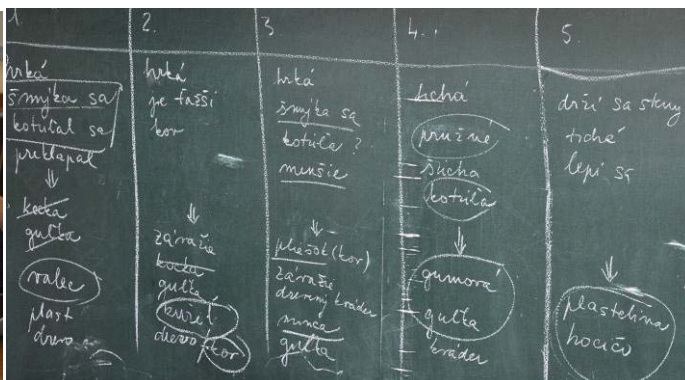 1.
hrká
šmýka sa
kotúľal sa
preklápal
kocka
guľka
valec
plast
drevo
2.
hrká
je ťažší
kov
závažie
kocka
guľka
drevo kov
3.
hrká
šmýka sa
kotúľa ?
menšie
(kov)
závažie
drevený kváder
minca
guľka
4.
tichá
pružné
šuchá
kotúľa
gumová
guľka
kváder
5.
drží sa steny
tiché
lepí sa
plastelína
hocičo